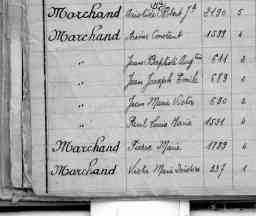 Marchand Aristide Albert Jh 2190 5
Marchand Constant 1599 2
" Jean Baptiste Augte 611 2
" Jean Joseph Emile 689 2
" Jean Marie Victor 690 2
" Paul Louis Marie 1531 2
Marchand Pierre Marie 1789 2
Marchand Victor Marie Isidore 237 1